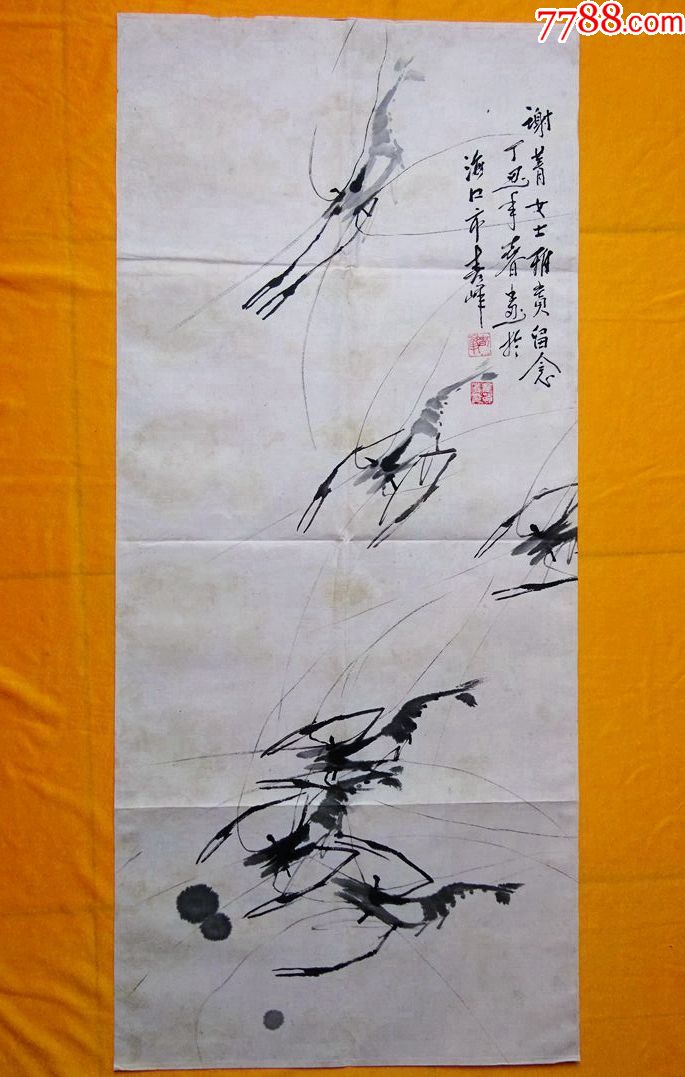 7788.com
谢菁女士雅赏留念
丁丑年春画于
海口市春峰